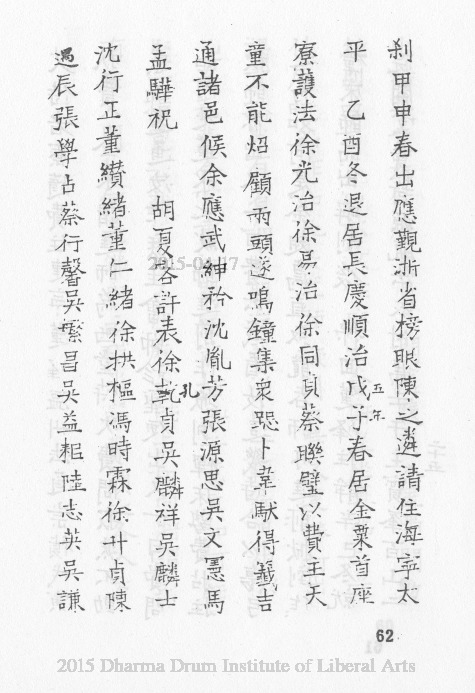 剎甲申春出應觀浙省榜眼陳之遴請住海寧太
平　乙酉冬退居長慶順治戊子五年春居金粟首座
寮護法徐光治徐易治徐同貞蔡聯璧以費主天
童不能炤顧兩頭遂鳴鐘集衆跽卜韋馱得籤吉
通諸邑候余應武紳衿沈胤芳張源思吳文憲馬
孟驊祝　胡夏容許表徐乾孔貞吳麟祥吳麟士
沈行正董纘緒董仁緒徐拱樞馮時霖徐升貞陳
遇辰張學占蔡行馨吳繁昌吳益粗陸志英吳謙
62
2015-04-17
2015 Dharma Drum Institute of Liberal Arts